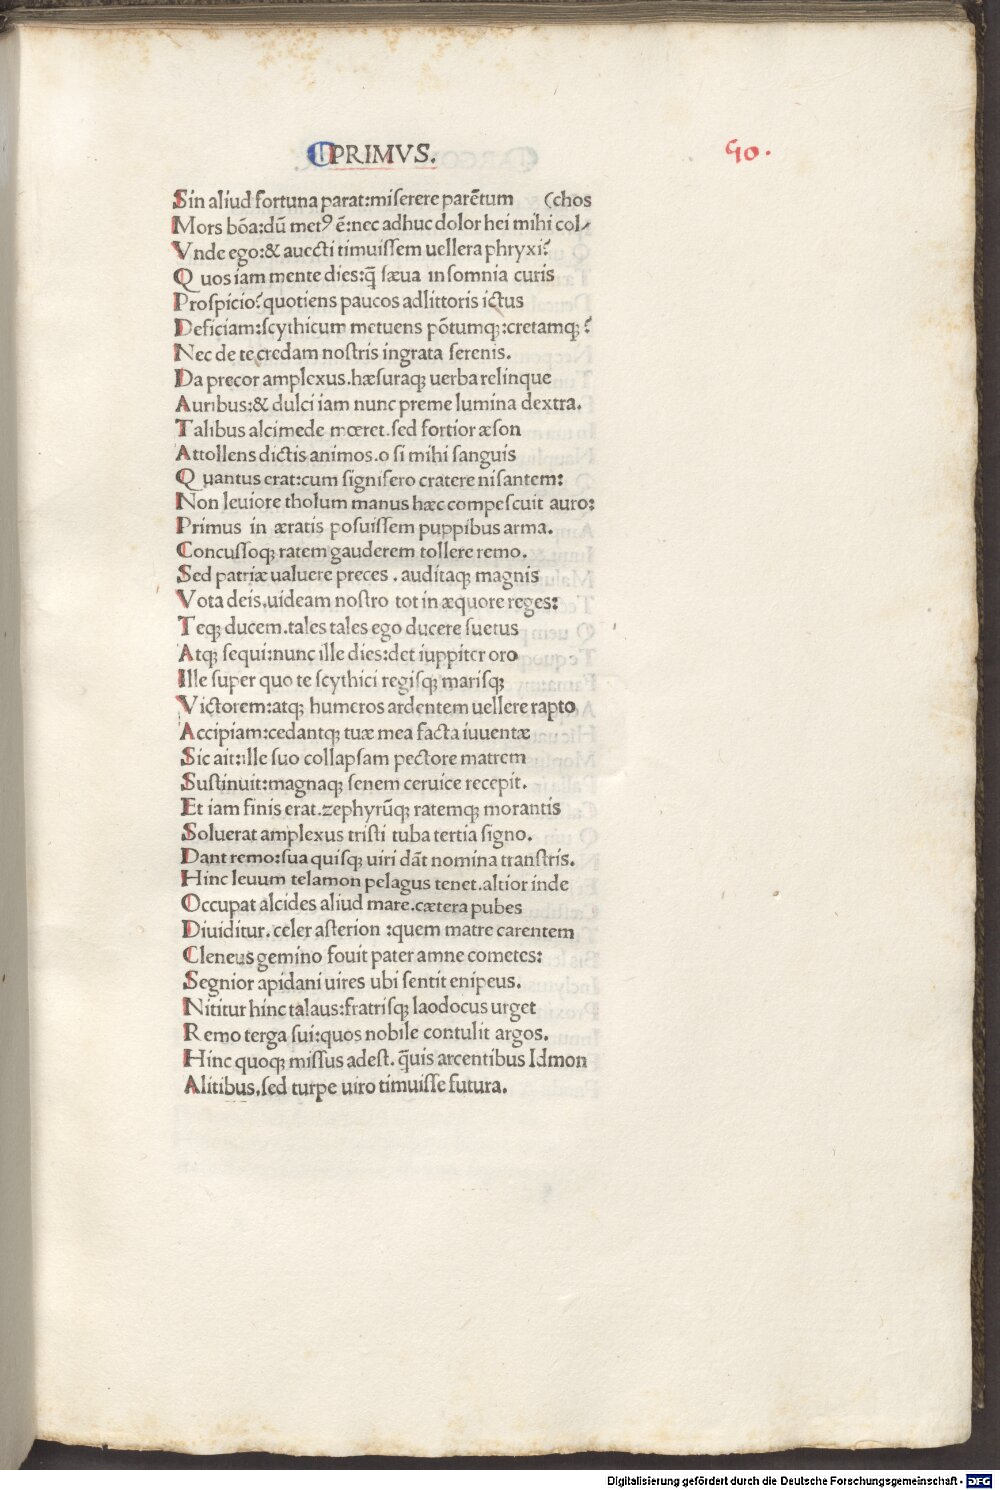 PRIMVS.
90.
Sin aliud fortuna parat:miserere parētum (chos
Mors bōa:dū metꝰ ē:nec adhuc dolor hei mihi col-
Vnde ego:& auecti timuissem uellera phryxi?
Quos iam mente dies:q̄ sæua insomnia curis
Prospicio?quotiens paucos adlittoris ictus
Deficiam:scythicum metuens pōtumq;:cretamq;?
Nec de te credam nostris ingrata serenis.
Da precor amplexus.hæsuraq; uerba relinque
Auribus:& dulci iam nunc preme lumina dextra.
Talibus alcimede mœret.sed fortior æson
Attollens dictis animos.o si mihi sanguis
Quantus erat:cum signifero cratere nisantem:
Non leuiore tholum manus hæc compescuit auro:
Primus in æratis posuissem puppibus arma.
Concussoq; ratem gauderem tollere remo.
Sed patriæ ualuere preces.auditaq; magnis
Vota deis.uideam nostro tot in æquore reges:
Teq; ducem.tales tales ego ducere suetus
Atq; sequi:nunc ille dies:det iuppiter oro
Ille super quo te scythici regisq; marisq;
Victorem:atq; humeros ardentem uellere rapto
Accipiam:cedantq; tuæ mea facta iuuentæ
Sic ait:ille suo collapsam pectore matrem
Sustinuit:magnaq; senem ceruice recepit.
Et iam finis erat.zephyrūq; ratemq; morantis
Soluerat amplexus tristi tuba tertia signo.
Dant remo:sua quisq; uiri dāt nomina transtris.
Hinc leuum telamon pelagus tenet.altior inde
Occupat alcides aliud mare.cætera pubes
Diuiditur.celer asterion :quem matre carentem
Cleneus gemino fouit pater amne cometes:
Segnior apidani uires ubi sentit enipeus.
Nititur hinc talaus:fratrisq; laodocus urget
Remo terga sui:quos nobile contulit argos.
Hinc quoq; missus adest.q̄uis arcentibus Idmon
Alitibus.sed turpe uiro timuisse futura.
Digitalisierung gefördert durch die Deutsche Forschungsgemeinschaft - DFG